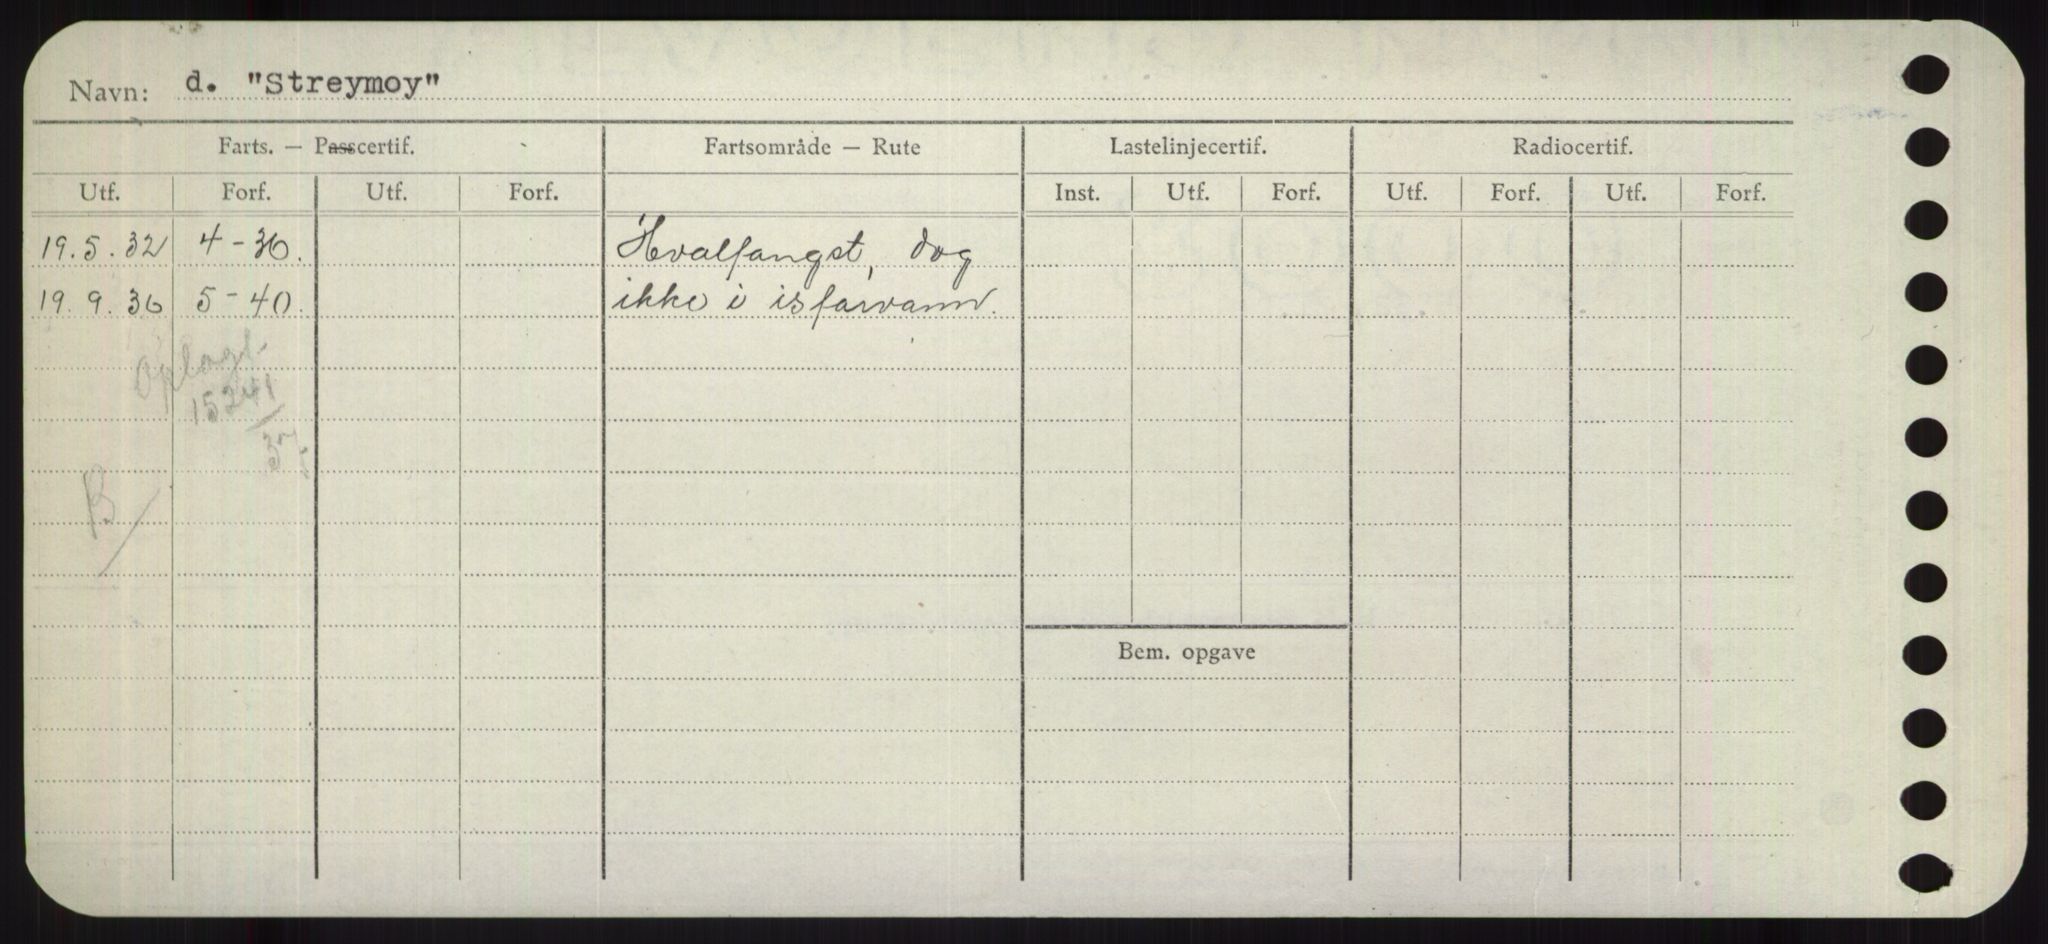 Navn: d. "Streymoy"
Farts. — Passcertif. Fartsområde — Rute Lastelinjecertif. Radiocertif.
Utf. Forf. Utf. Forf. Inst. Utf. Forf. Utf. Forf. Utf. Forf.
19.5.32 4-36. Hvalfangst, dog
19.9.36 5-40. ikke i isfarvann.
Oplagt
15241/37
B/
Bem. opgave